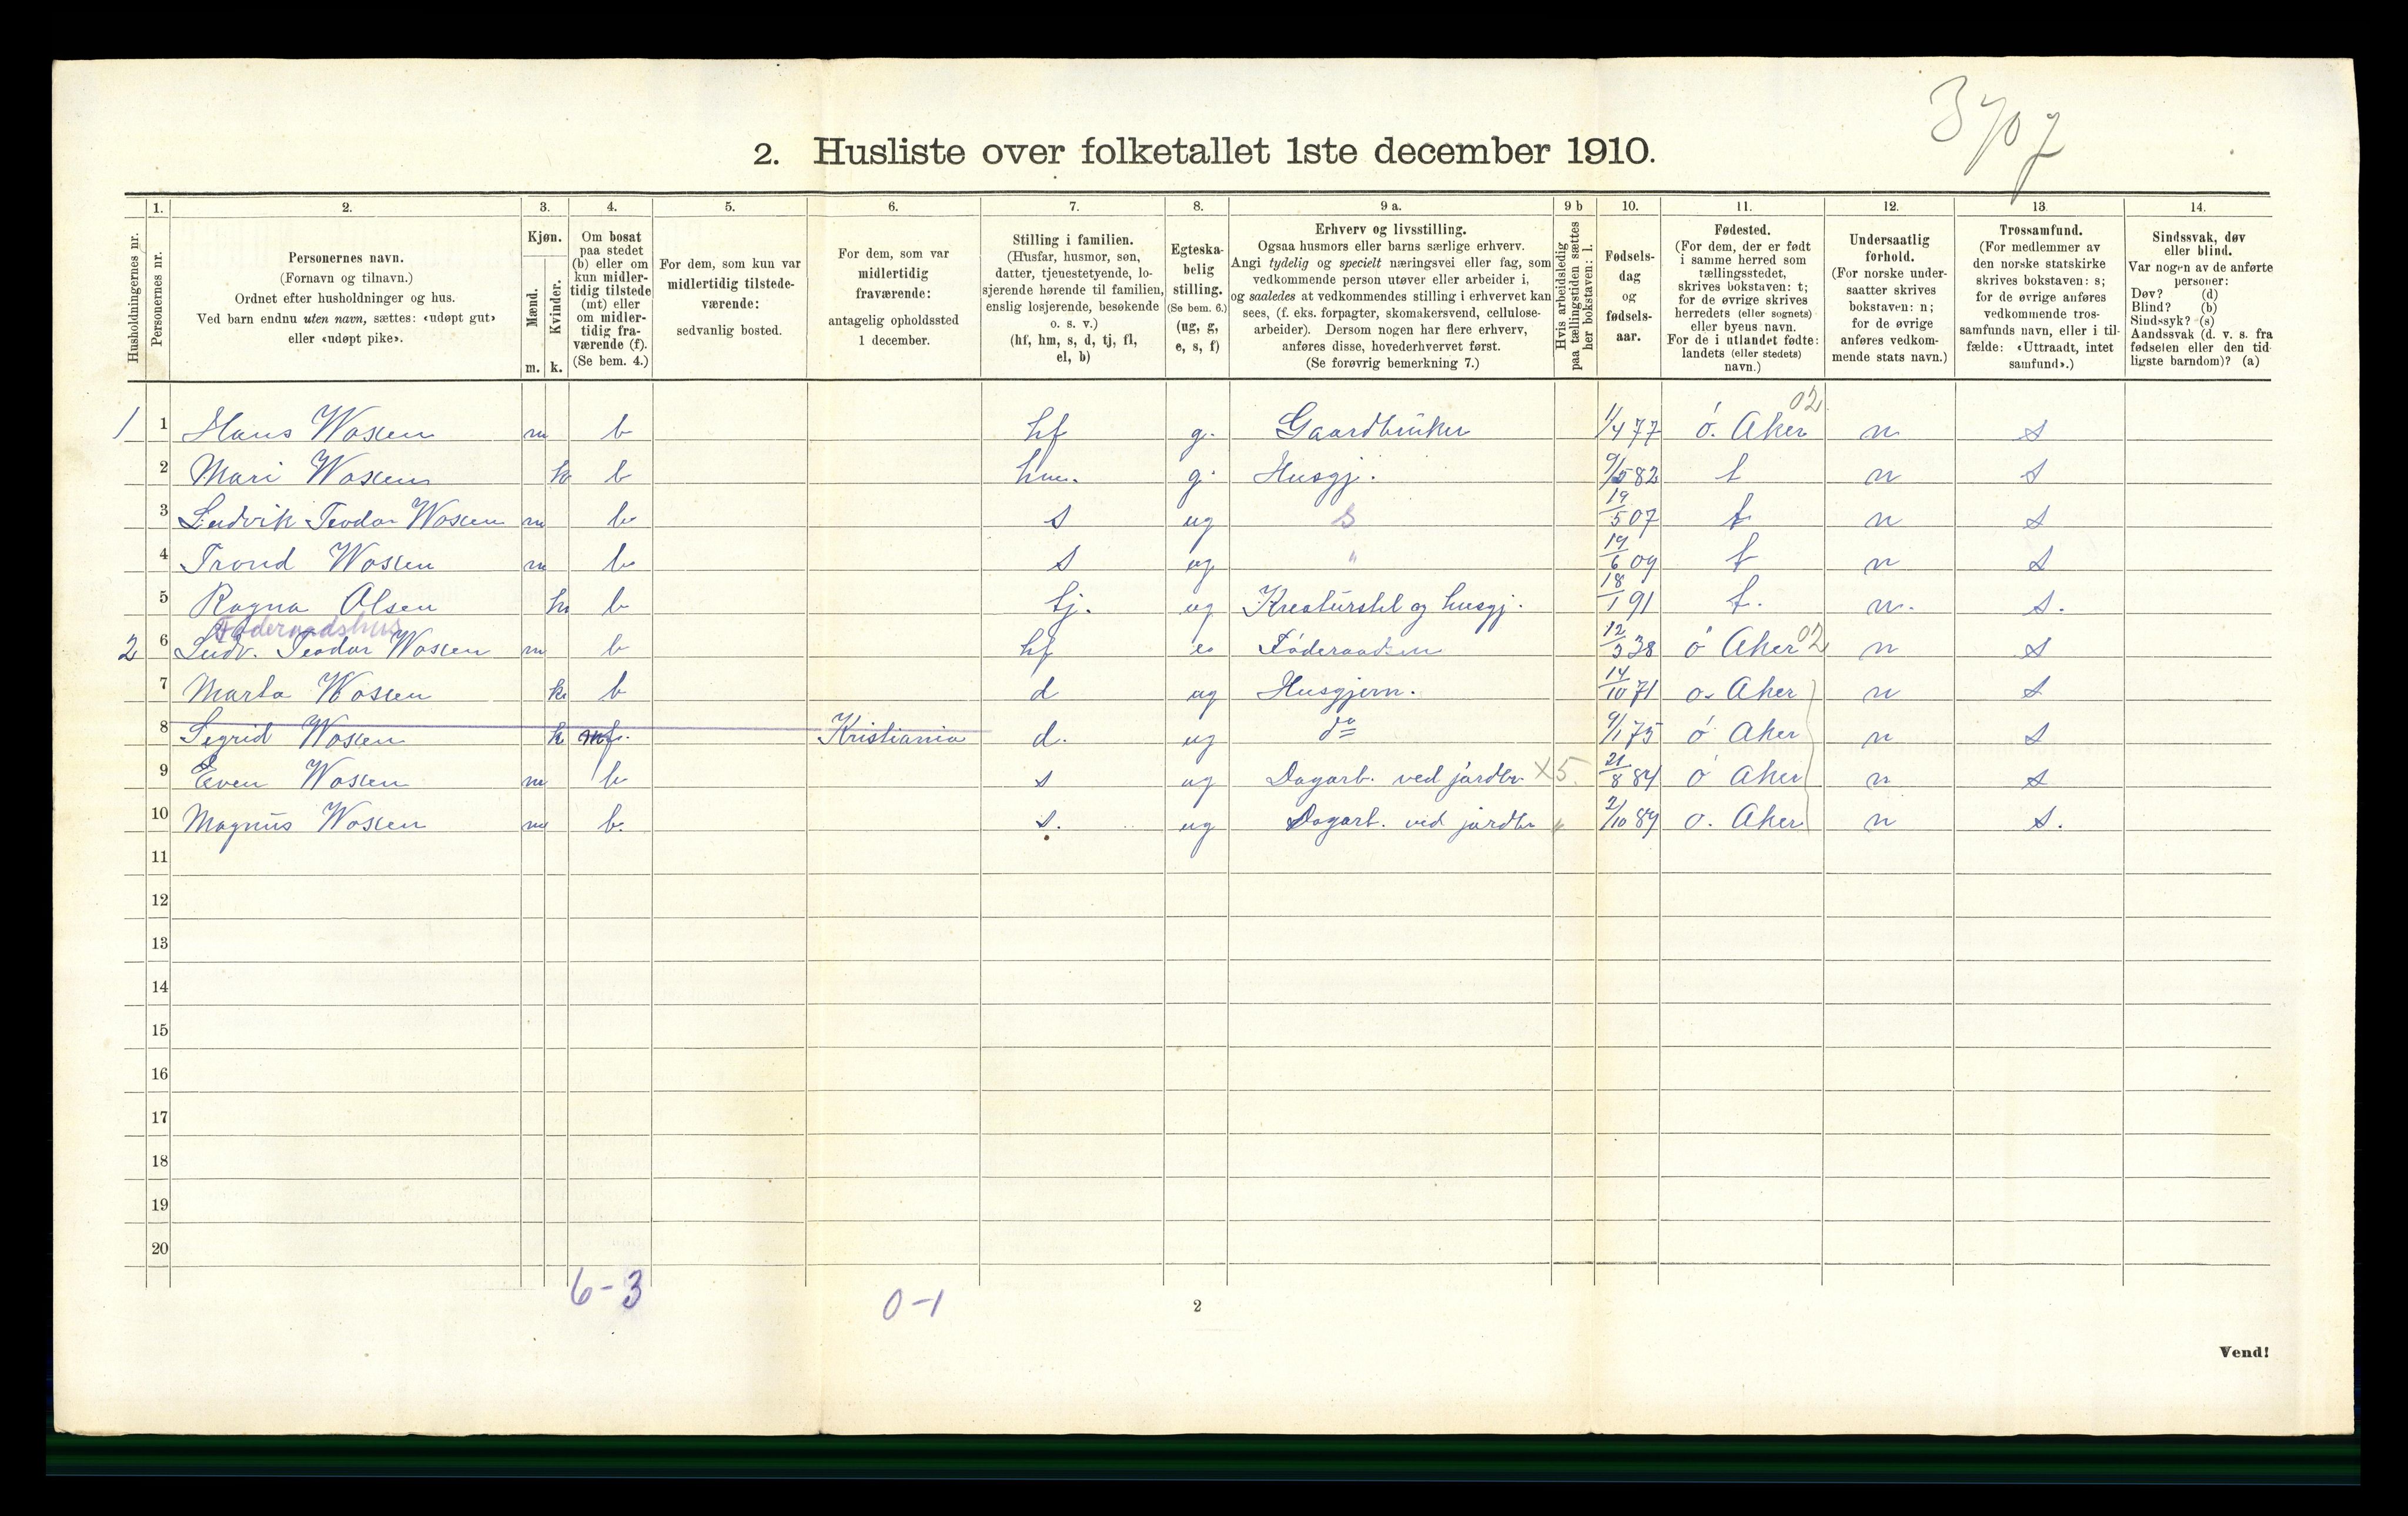 3707
2. Husliste over folketallet 1ste december 1910.
Husholdningernes nr.
1. Personernes nr.
2. Personernes navn. (Fornavn og tilnavn.) Ordnet efter husholdninger og hus. Ved barn endnu uten navn, sættes: «udøpt gut» eller «udøpt pike».
3. Kjøn. Mænd. m. Kvinder. k.
4. Om bosat paa stedet (b) eller om kun midlertidig tilstede (mt) eller om midlertidig fraværende (f). (Se bem. 4.)
5. For dem, som kun var midlertidig tilstedeværende: sedvanlig bosted.
6. For dem, som var midlertidig fraværende: antagelig opholdssted 1 december.
7. Stilling i familien. (Husfar, husmor, søn, datter, tjenestetyende, losjerende hørende til familien, enslig losjerende, besøkende o. s. v.) (hf, hm, s, d, tj, fl, el, b)
8. Egteskabelig stilling. (Se bem. 6.) (ug, g, e, s, f)
9 a. Erhverv og livsstilling. Ogsaa husmors eller barns særlige erhverv. Angi tydelig og specielt næringsvei eller fag, som vedkommende person utøver eller arbeider i, og saaledes at vedkommendes stilling i erhvervet kan sees, (f. eks. forpagter, skomakersvend, cellulosearbeider). Dersom nogen har flere erhverv, anføres disse, hovederhvervet først. (Se forøvrig bemerkning 7.)
9 b Hvis arbeidsledig paa tællingstiden sættes her bokstaven: l.
10. Fødselsdag og fødselsaar.
11. Fødested. (For dem, der er født i samme herred som tællingsstedet, skrives bokstaven: t; for de øvrige skrives herredets (eller sognets) eller byens navn. For de i utlandet fødte: landets (eller stedets) navn.)
12. Undersaatlig forhold. (For norske undersaatter skrives bokstaven: n; for de øvrige anføres vedkommende stats navn.)
13. Trossamfund. (For medlemmer av den norske statskirke skrives bokstaven: s; for de øvrige anføres vedkommende trossamfunds navn, eller i tilfælde: «Uttraadt, intet samfund».)
14. Sindssvak, døv eller blind. Var nogen av de anførte personer: Døv? (d) Blind? (b) Sindssyk? (s) Aandssvak (d. v. s. fra fødselen eller den tidligste barndom)? (a)
1 1 Hans Woxen m b hf g. Gaardbruker 1/4 77 ö. Aker 02 n s
2 Mari Woxen k b hm. g. Husgj. 9/5 82 t n s
3 Ludvik Teodor Woxen m b s ug s 19/5 07 t n s
4 Trond Woxen m b s ug " 19/6 09 t n s
5 Ragna Olsen k b tj. ug Kreaturstel og husgj. 18/1 91 t. n. s.
Føderaadshus
2 6 Ludv. Teodor Woxen m b hf e Föderaadsm 12/3 38 ö Aker 02 n s
7 Marta Woxen k b d ug Husgjern. 14/10 71 ö. Aker n s
8 Sigrid Woxen k f. Kristiania d. ug do 9/1 75 ö Aker n s
9 Even Woxen m b s ug Dagarb. ved jordbr X5. 21/8 84 ö Aker n s
10 Magnus Woxen m b. s. ug Dagarb. ved jordbr " 2/10 89 ö. Aker n s.
11
12
13
14
15
16
17
18
19
20
6-3
0-1
2
Vend!